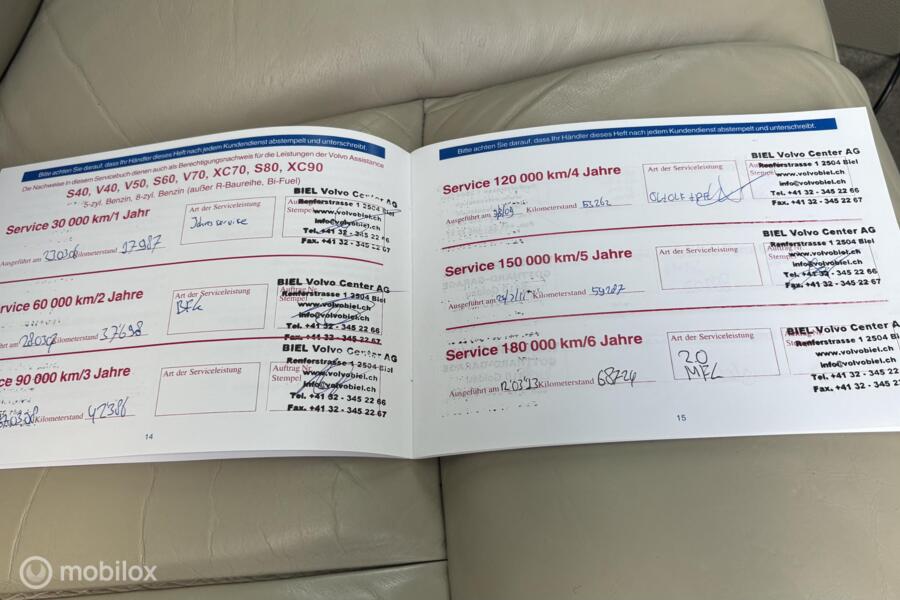 Bitte achten Sie darauf, dass Ihr Händler dieses Heft nach jedem Kundendienst abstempelt und unterschreibt.
Die Nachweise in diesem Servicebuch dienen auch als Berechtigungsnachweis für die Leistungen der Volvo Assistance
S40, V40, V50, S60, V70, XC70, S80, XC90
5-zyl. Benzin, 8-zyl. Benzin (außer R-Baureihe, Bi-Fuel)
Service 30 000 km/1 Jahr
Art der Serviceleistung
Jahresservice
Stempel
BIEL Volvo Center AG
Renferstrasse 1 2504 Biel
www.volvobiel.ch
info@volvobiel.ch
Tel. +41 32 - 345 22 66
Fax. +41 32 - 345 22 67
Ausgeführt am
Kilometerstand
rvice 60 000 km/2 Jahre
Art der Serviceleistung
Auftrag Nr.
Stempel
BIEL Volvo Center AG
Renferstrasse 1 2504 Biel
www.volvobiel.ch
info@volvobiel.ch
Tel. +41 32 - 345 22 66
Fax. +41 32 - 345 22 67
hrt am
Kilometerstand 37698
ce 90 000 km/3 Jahre
Art der Serviceleistung
Auftrag Nr.
Stempel
BIEL Volvo Center AG
Renferstrasse 1 2504 Biel
www.volvobiel.ch
info@volvobiel.ch
Tel. +41 32 - 345 22 66
Fax. +41 32 - 345 22 67
Kilometerstand 42386
14
Bitte achten Sie darauf, dass Ihr Händler dieses Heft nach jedem Kundendienst abstempelt und unterschreibt.
Service 120 000 km/4 Jahre
Art der Serviceleistung
BIEL Volvo Center AG
Renferstrasse 1 2504 Biel
www.volvobiel.ch
info@volvobiel.ch
Tel. +41 32 - 345 22 66
Fax. +41 32 - 345 22 67
Ausgeführt am
Kilometerstand 53262
Service 150 000 km/5 Jahre
Art der Serviceleistung
BIEL Volvo Center AG
Renferstrasse 1 2504 Biel
www.volvobiel.ch
info@volvobiel.ch
Tel. +41 32 - 345 22 66
Fax. +41 32 - 345 22 67
Ausgeführt am
Kilometerstand 59287
Service 180 000 km/6 Jahre
Art der Serviceleistung
BIEL Volvo Center A
Renferstrasse 1 2504 Biel
www.volvobiel.ch
info@volvobiel.ch
Tel. +41 32 - 345 22 6
Fax. +41 32 - 345 22 6
Ausgeführt am
Kilometerstand 68724
15
mobilox